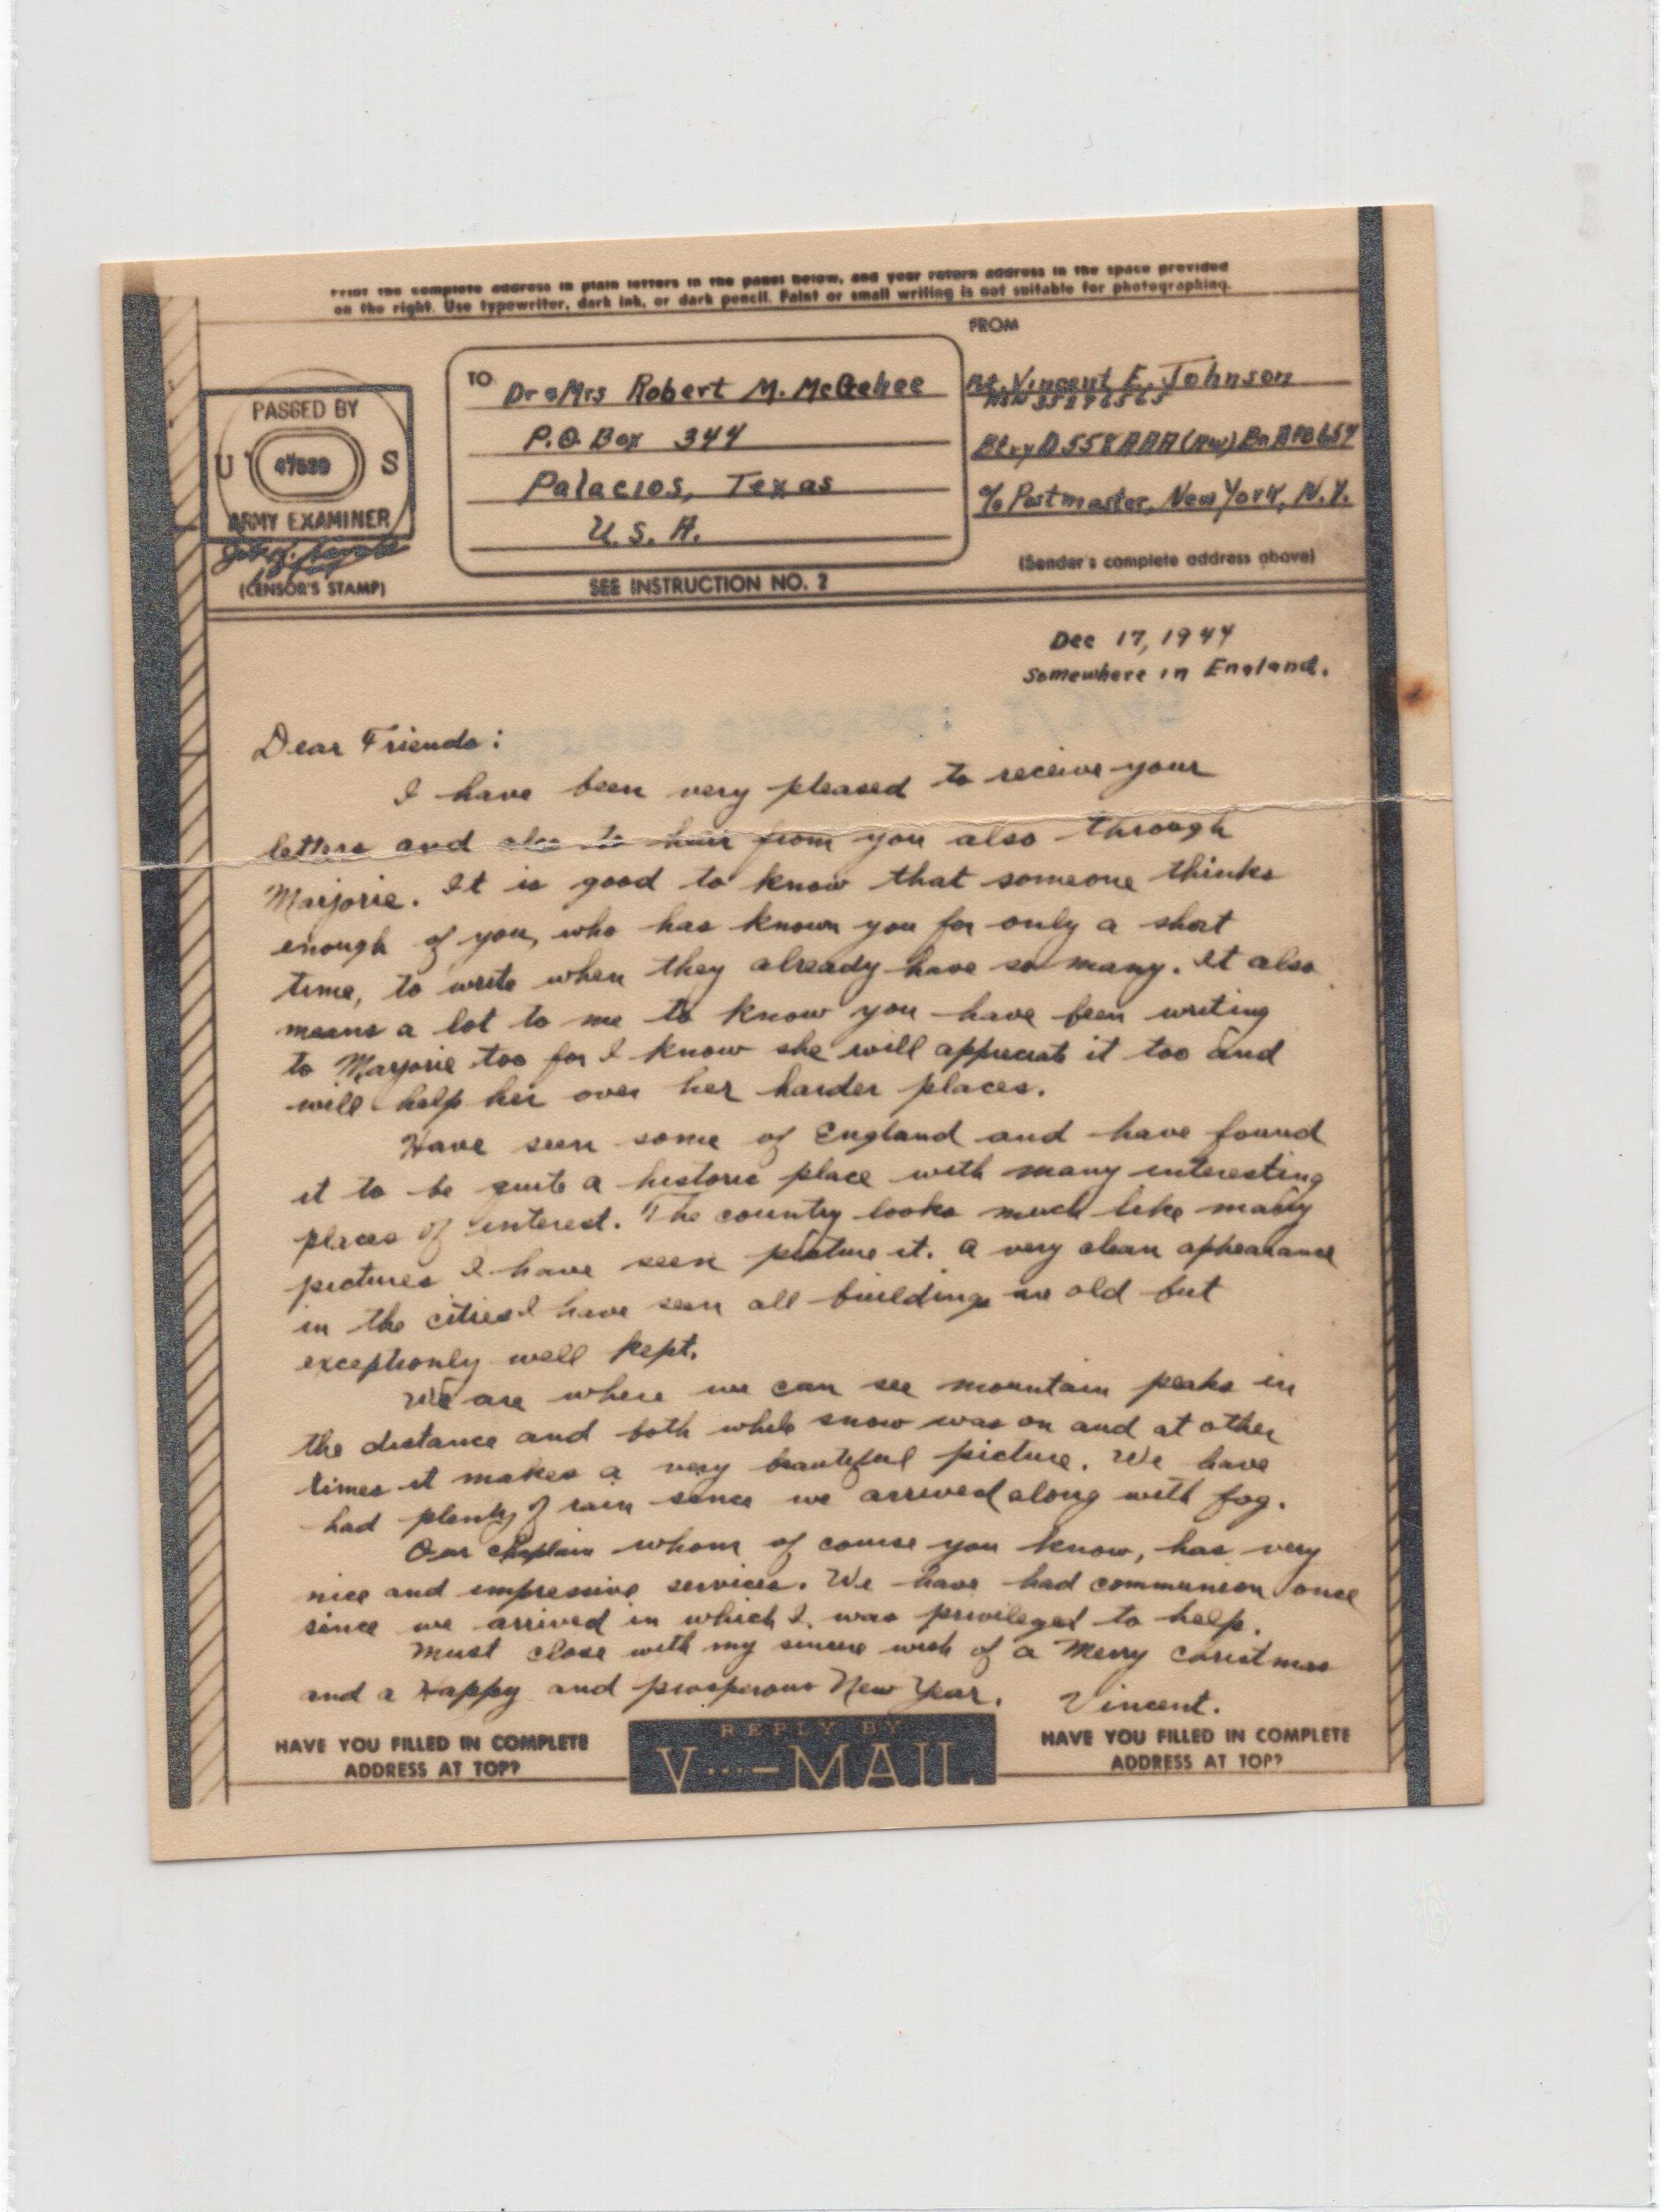 Print the complete address in plain letters in the panel below, and your return address in the space provided
on the right. Use typewriter, dark ink, or dark pencil. Faint or small writing is not suitable for photographing.
FROM
PASSED BY
U S
ARMY EXAMINER
(CENSOR'S STAMP)
TO
Dr & Mrs Robert M. McGehee
P.O. Box 344
Palacios, Texas
U.S.A.
SEE INSTRUCTION NO. 2
Pvt. Vincent E. Johnson
ASN 35296565
Btry D 558 AAA (AW) Bn APO 654
c/o Postmaster, New York, N.Y.
(Sender's complete address above)
Dec 17, 1944
Somewhere in England.
Dear Friends:
I have been very pleased to receive your
letters and also to hear from you also through
Marjorie. It is good to know that someone thinks
enough of you, who has known you for only a short
time, to write when they already have so many. It also
means a lot to me to know you have been writing
to Marjorie too for I know she will appreciate it too and
will help her over her harder places.
Have seen some of England and have found
it to be quite a historic place with many interesting
places of interest. The country looks much like many
pictures I have seen picture it. A very clean appearance
in the cities I have seen all buildings are old but
exceptionly well kept.
We are where we can see mountain peaks in
the distance and both while snow was on and at other
times it makes a very beautiful picture. We have
had plenty of rain since we arrived along with fog.
Our chaplain whom of course you know, has very
nice and impressive services. We have had communion once
since we arrived in which I was privileged to help.
Must close with my sincere wish of a Merry Christmas
and a Happy and prosperous New Year. Vincent.
HAVE YOU FILLED IN COMPLETE
ADDRESS AT TOP?
REPLY BY
V···—MAIL
HAVE YOU FILLED IN COMPLETE
ADDRESS AT TOP?